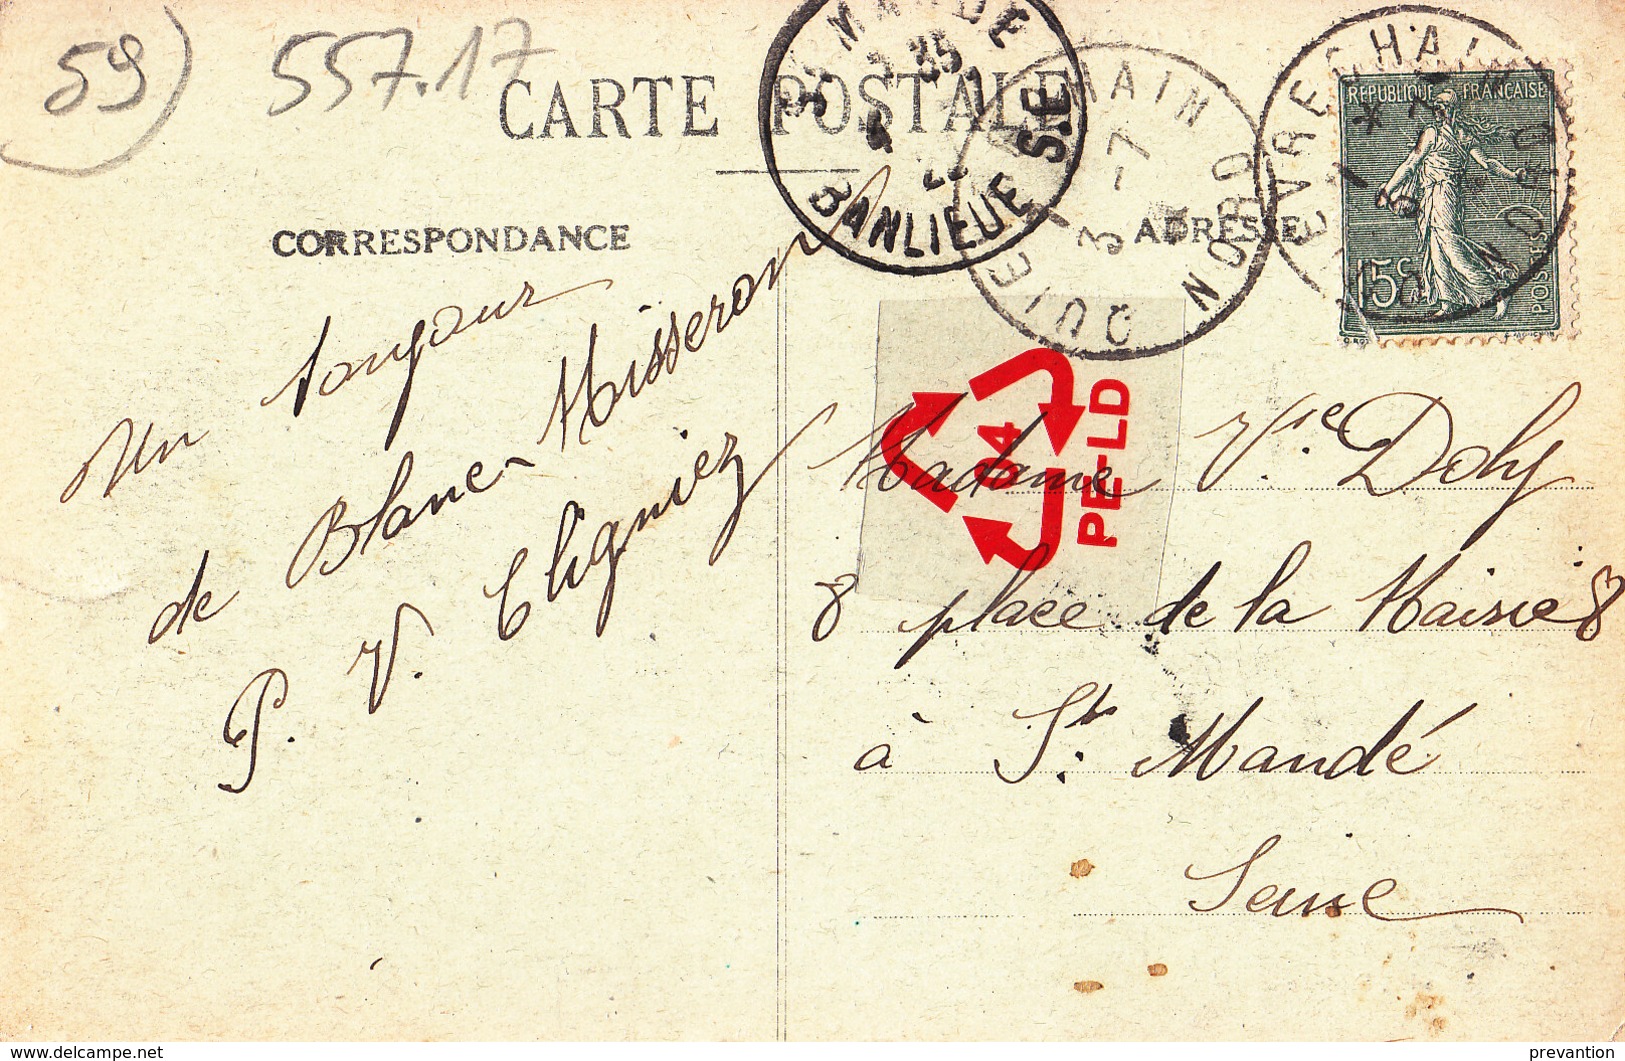 59) 557.17
CARTE POSTALE
CORRESPONDANCE
ADRESSE
ST MANDE
BANLIEUE S.E
QUIEVRECHAIN
NORD
3-7
QUIEVRECHAIN
NORD
REPUBLIQUE FRANÇAISE
15c
POSTES
Un bonjour
de Blanc-Misseron
P. V. Cligniez
04
PE-LD
Madame Vve Dohy
8 place de la Mairie 8
à St. Mandé
Seine
delcampe.net
prevantion